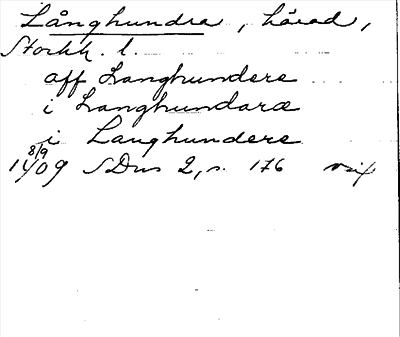 Långhundra, härad,
Stockh. l.
aff Langhundere
i Langhundaræ
i Langhundere
8/9
1409 SDns 2, s. 176